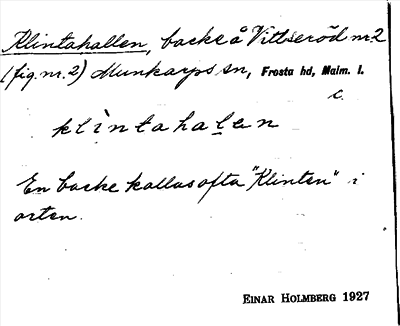 Klintahallen, backe å Vittseröd nr.2
(fig. nr. 2) Munkarps sn, Frosta hd, Malm. l.
c.
klìntahalen
En backe kallas ofta "Klinten" i
orten.
EINAR HOLMBERG 1927